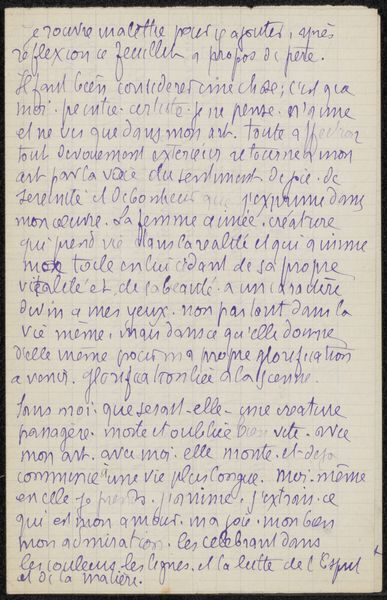 Je rouvre ma lettre pour y ajouter, après
réflexion ce feuillet a propos de père.
Il faut bien considerer une chose; c'est que
moi. peintre. artiste. je ne pense. n'aime
et ne vis que dans mon art. toute affection
tout devouement exterieur retourne a mon
art par la voie du sentiment de joie. de
serenité et de bonheur que j'exprime dans
mon œuvre. La femme aimée. créature
qui prend vie dans la realité et qui anime
ma toile en lui cédant de sa propre
vitalité et de sa beauté. a un caractère
divin a mes yeux. non pas tant dans la
vie même. mais dans ce qu'elle donne
d'elle même pour ma propre glorification
a venir. glorification liée a la sienne.
Sans moi. que serait-elle - une creature
passagère. morte et oubliée bien vite. avec
mon art. avec moi. elle monte. et deja
commence une vie plus longue. Moi-même
en elle je prends. j'anime. j'extrais. ce
qui est mon amour. ma joie. mon bien
mon admiration. les celebrant dans
les couleurs. les lignes. et la lutte de l'Esprit
et de la matière.